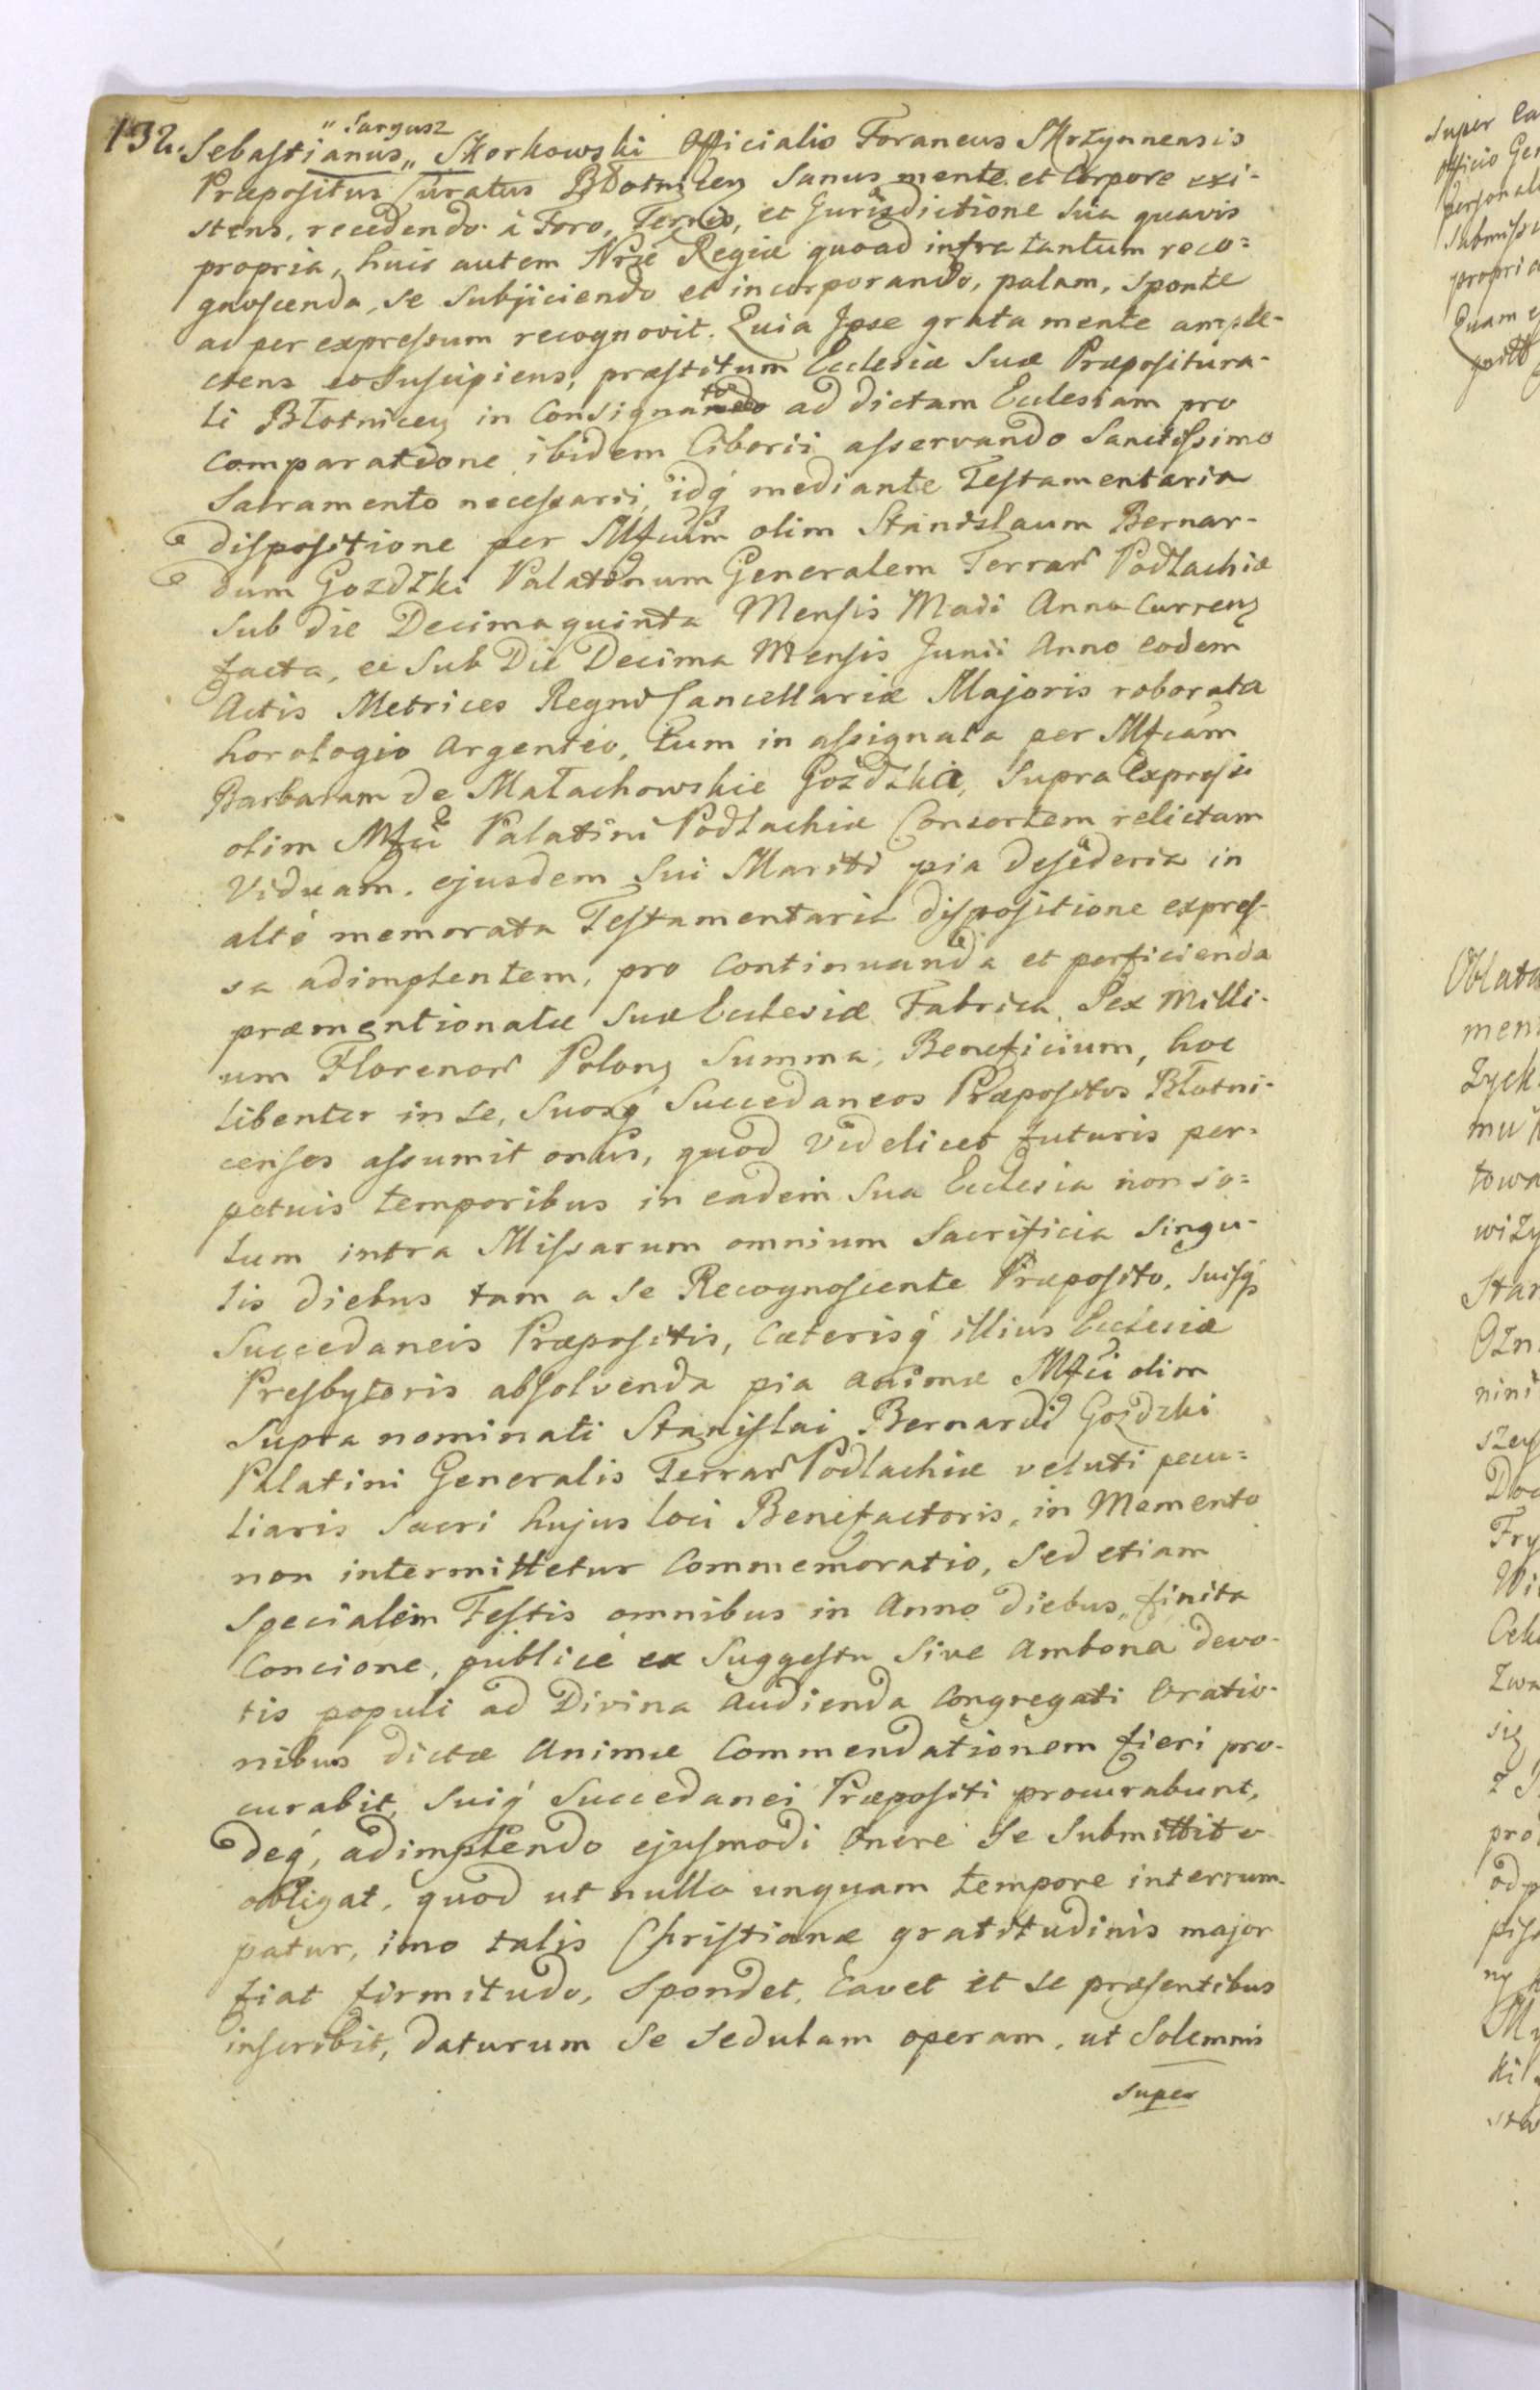 132.
" Sargusz
Sebastianus „ Skorkowski Officialis Foraneus Skrzynnensis
Præpositus Curatus Błotnicen Sanus mente et Corpore exi-
stens, recedendo à Foro, Terris, et Jurisdictione Sua quavis
propria, huic autem Nræ Regiæ quoad infra tantum reco=
gnoscenda, Se Subjiciendo et incorporando, palam, Sponte
ac per expressum recognovit. Quia Ipse grata mente ample-
ctens et Suscipiens, præstitum Ecclesiæ Suæ Præpositura-
li Błotnicen in Consignato ad dictam Ecclesiam pro
Comparatione ibidem Ciborii asservando Sanctissimo
Sacramento necessarii, idq mediante Testamentaria
dispositione per Mfcum olim Stanislaum Bernar-
dum Gozdzki Palatinum Generalem Terrar Podlachiæ
Sub die Decima quinta Mensis Maii Anno Curren
facta, et Sub Die Decima Mensis Junii Anno eodem
Actis Metrices Regni Cancellariæ Majoris roborata
horologio argenteo, tum in assignata per Mfcam
Barbaram de Małachowskie Gozdzka, Supra Expressi
olim Mfci Palatini Podlachiæ Consortem relictam
Viduam, ejusdem Sui Mariti pia desideria in
altè memorata Testamentaria dispositione expres-
sa adimplentem, pro Continuanda et perficienda
præmentionatæ Suæ Ecclesiæ Fabrica, Sex Milli-
um Florenor Polon Summa, Beneficium, hoc
libenter in se, Suosq Succedaneos Præpositos Błotni-
censes assumit onus, quod Videlicet futuris per-
petuis temporibus in eadem Sua Ecclesia non so=
lum intra Missarum omnium Sacrificia Singu-
lis diebus tam a Se Recognoscente Præposito, Suisq
Succedaneis Præpositis, Cæterisq illius Ecclesiæ
Presbyteris absolvenda pia animæ Mfci olim
Supra nominati Stanislai Bernardi Gozdzki
Palatini Generalis Terrar Podlachiæ veluti pecu=
liaris Sacri hujus loci Benefactoris, in Memento
non intermittetur Commemoratio, Sed etiam
Specialem Festis omnibus in Anno diebus, finita
Concione, publicè ex Suggestu Sive Ambona devo-
tis populi ad Divina Audienda Congregati Oratio-
nibus dictæ Animæ Commendationem fieri pro-
curabit, Suiq Succedanei Præpositi procurabunt,
deq, adimplendo ejusmodi Onere Se Submittit et
obligat, quod ut nullo unquam tempore interrum-
patur, imo talis Christianæ gratitudinis major
fiat firmitudo, Spondet, Cavet et se præsentibus
inscribit, daturum Se Sedulam operam, ut Solemnis
Super
Super
Officio
propria
Quam
Oblata
men
mu
towa
Star
nini
pro